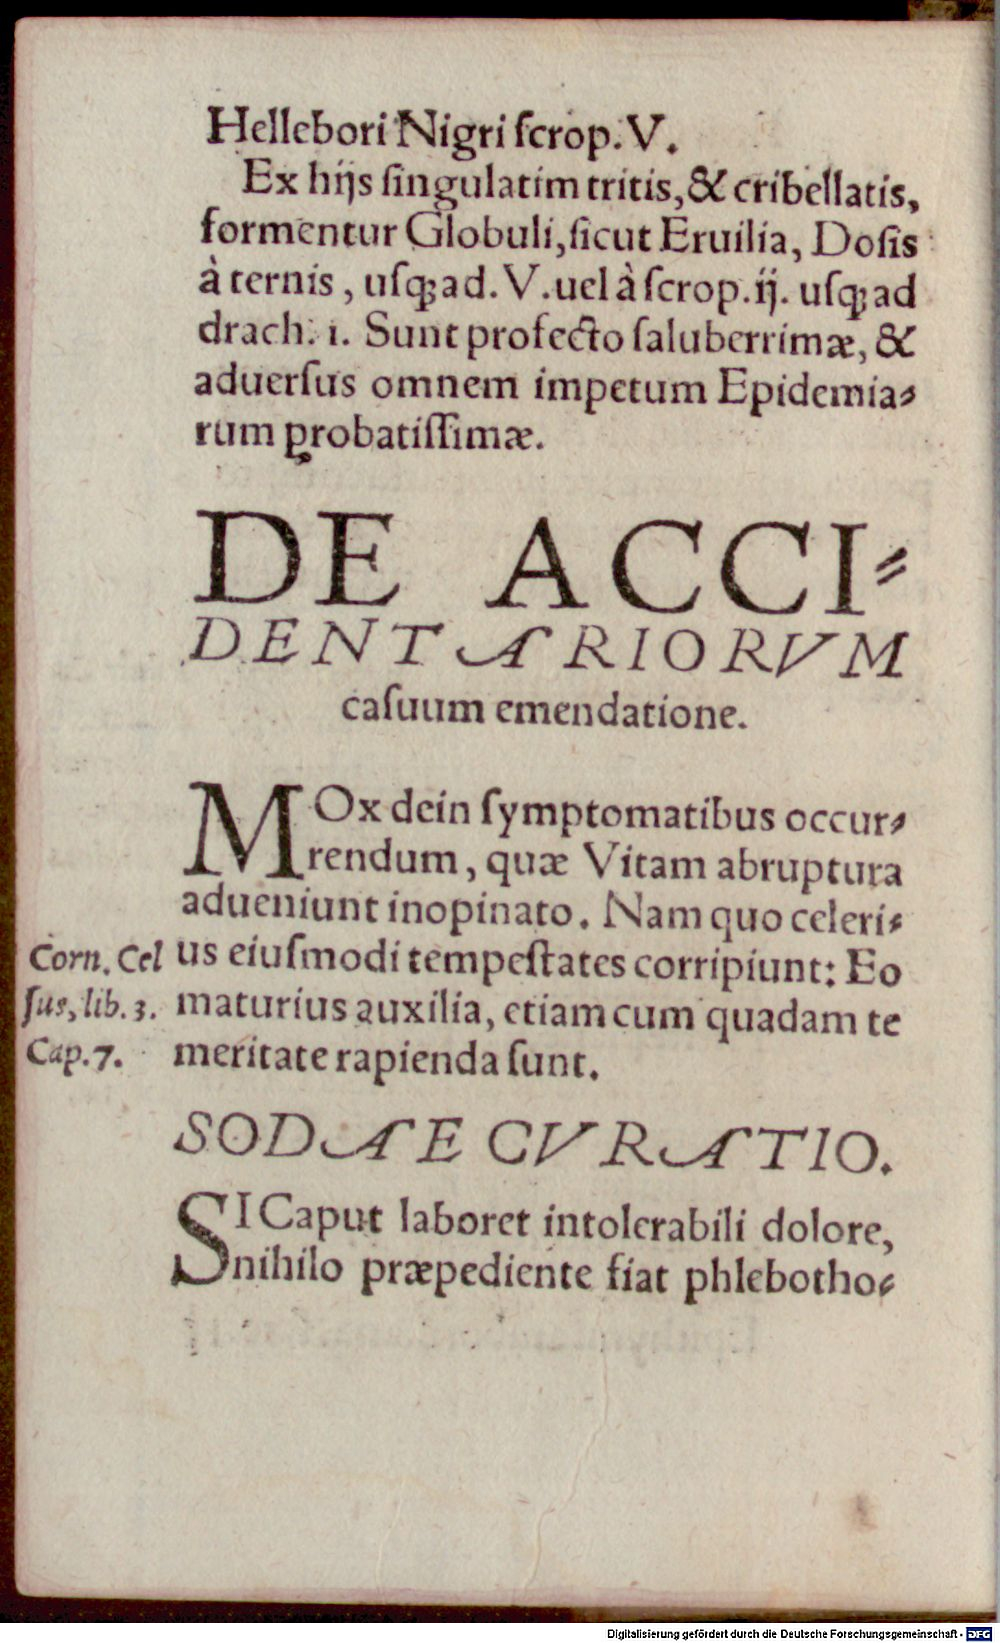 Hellebori Nigri ſcrop. V.
Ex hijs ſingulatim tritis, & cribellatis,
formentur Globuli, ſicut Eruilia, Doſis
à ternis, uſq; ad. V. uel à ſcrop. ij. uſq; ad
drach. 1. Sunt profecto ſaluberrimæ, &
aduerſus omnem impetum Epidemia⸗
rum probatiſſimæ.
DE ACCI⸗
DENTARIORVM
caſuum emendatione.
MOx dein ſymptomatibus occur⸗
rendum, quæ Vitam abruptura
adueniunt inopinato. Nam quo celeri⸗
us eiuſmodi tempeſtates corripiunt: Eo
maturius auxilia, etiam cum quadam te
meritate rapienda ſunt.
Corn. Cel
ſus, lib. 3.
Cap. 7.
SODAE CVRATIO.
SI Caput laboret intolerabili dolore,
nihilo præpediente fiat phlebotho⸗
Digitalisierung gefördert durch die Deutsche Forschungsgemeinschaft - DFG